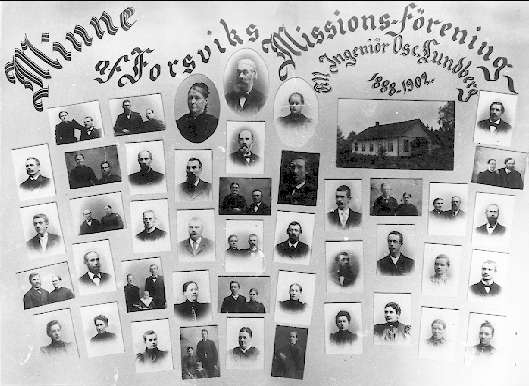 Minne
af Forsviks Missions-förening
Till Ingeniör Osc. Lundberg
1888-1902.